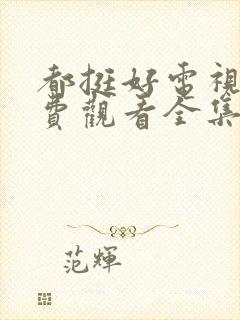 都挺好電視
費觀看全集
范輝